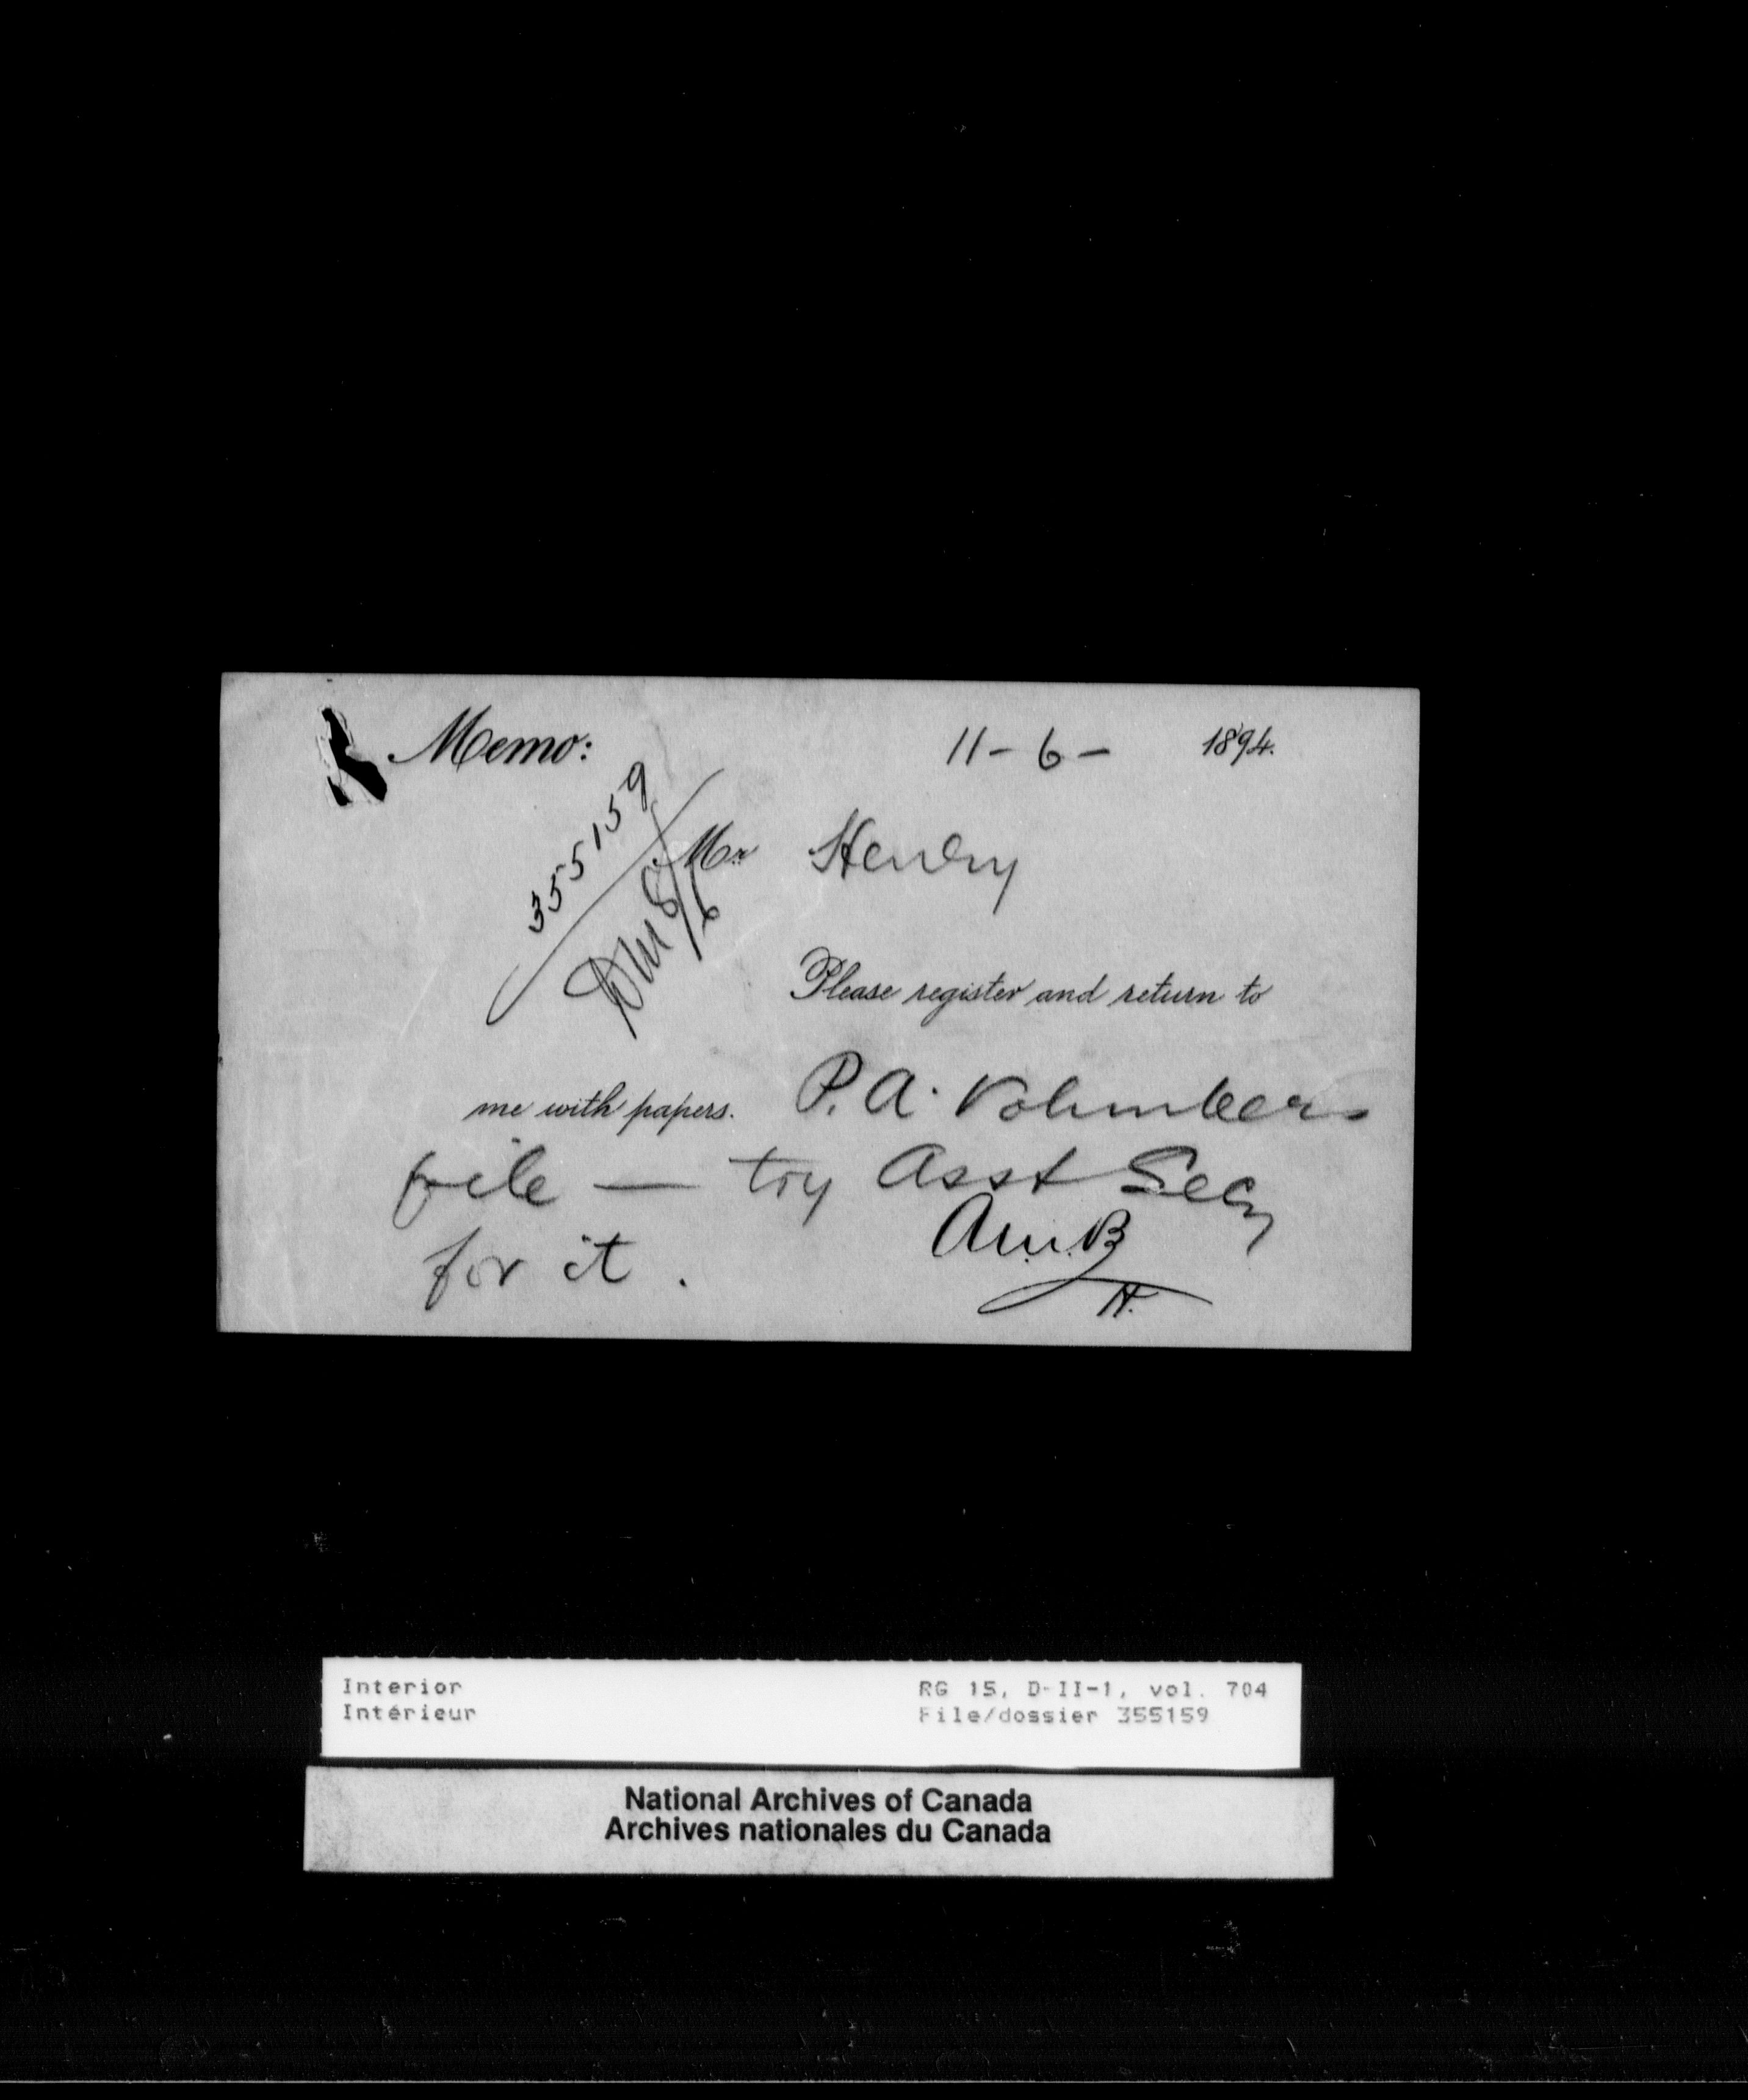 Memo: 11-6- 1894.
355159
Mr Henry
Please register and return to
me with papers. P. A.
file — try Asst Secy
for it.
Interior
Intérieur
RG 15, D-II-1, vol. 704
File/dossier 355159
National Archives of Canada
Archives nationales du Canada